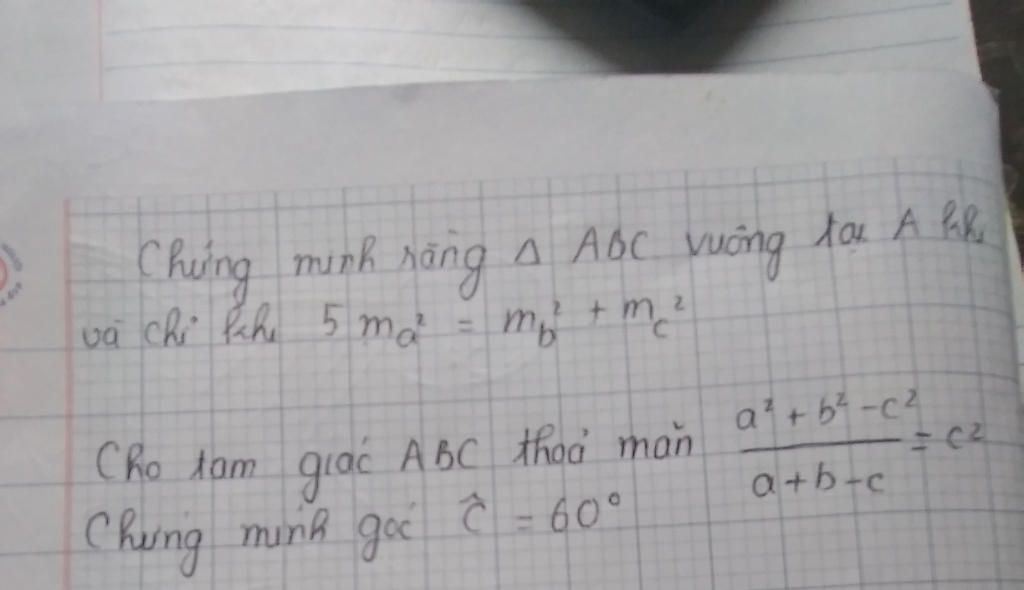 Chứng minh rằng Δ ABC vuông tại A khi
và chỉ khi 5 mₐ² = m_b² + m_c²
Cho tam giác ABC thoả mãn (a² + b² - c²)/(a + b - c) = c²
Chứng minh góc Ĉ = 60°